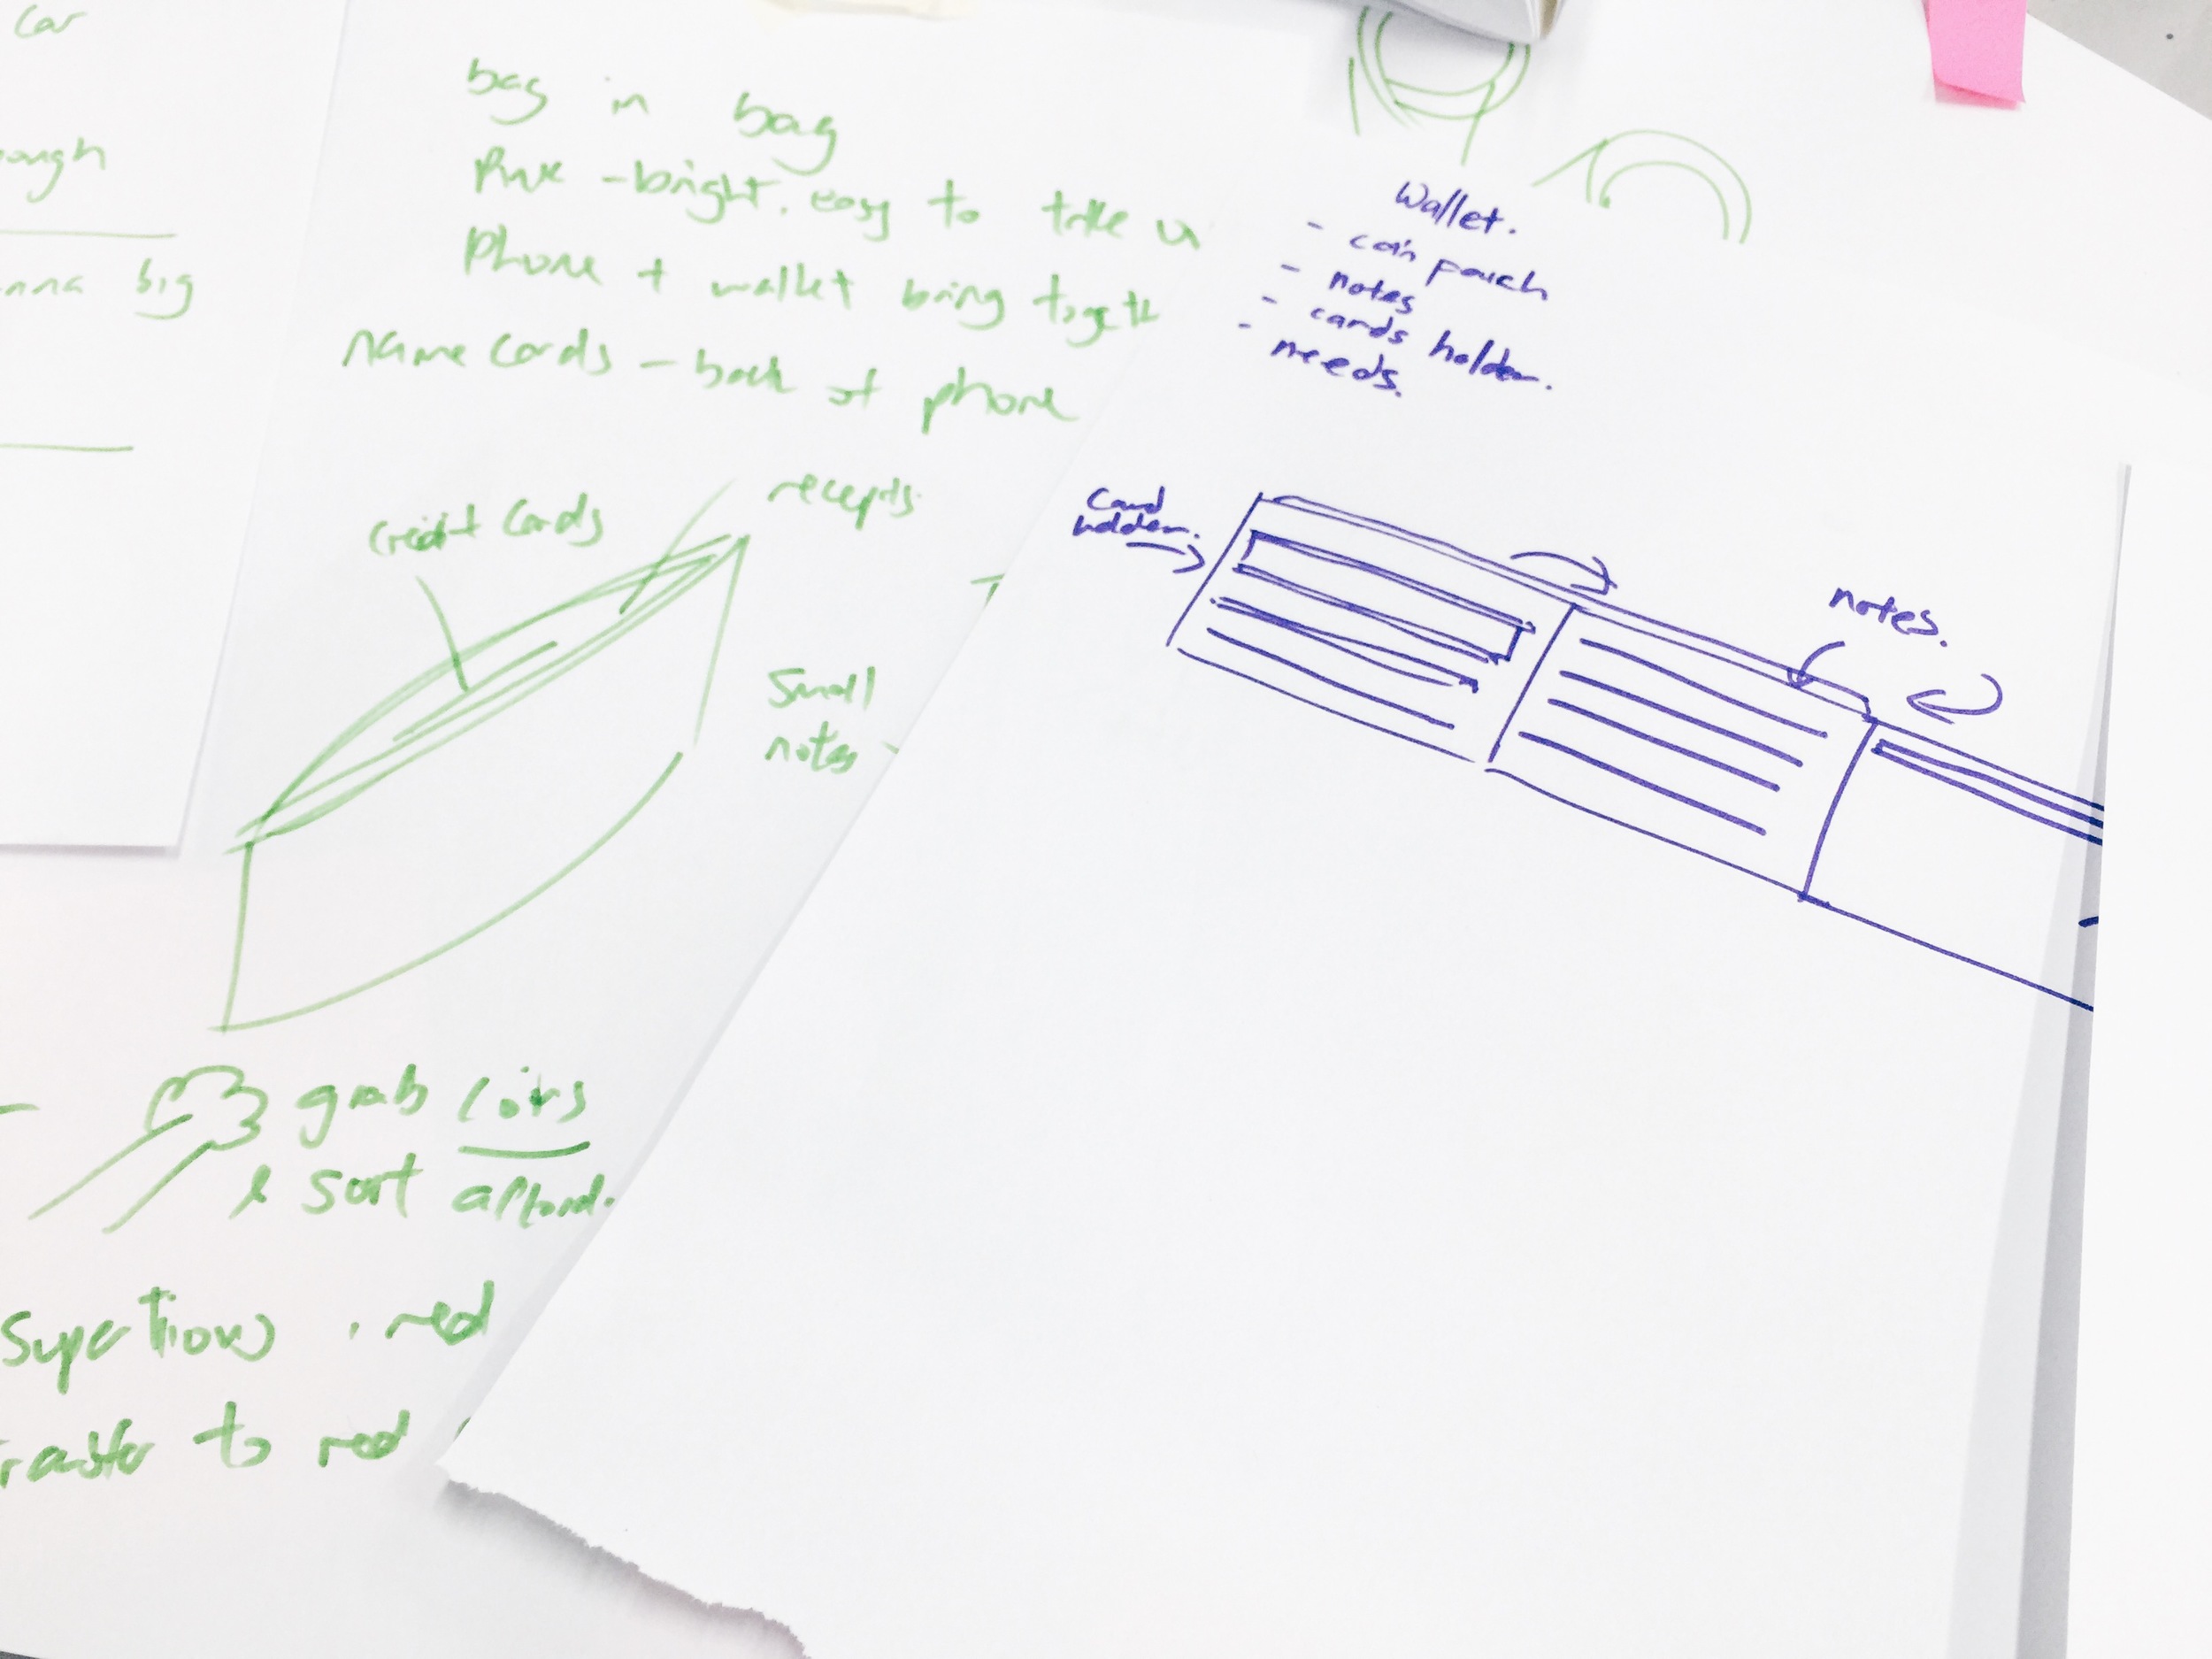 car
big
bag in bag
- bright. easy to take
phone + wallet bring
name cards - back of phone
credit cards
small
notes
grab coins
& sort
. red
to red
Wallet.
- coin pouch
- notes
- cards holder.
- needs.
Card
holder.
notes.